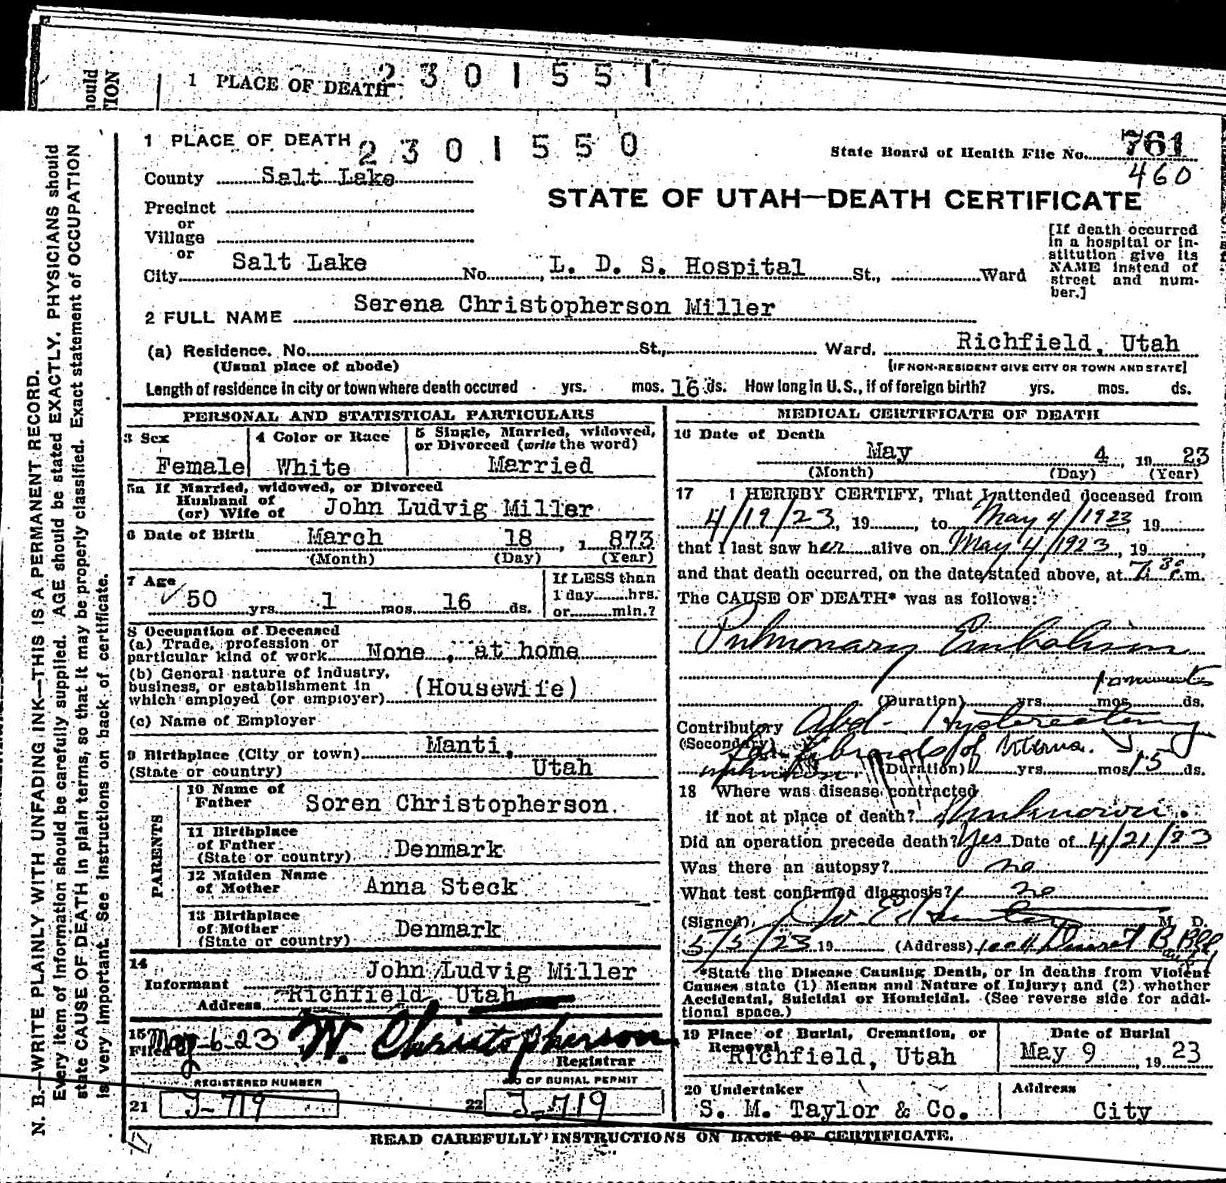 1 PLACE OF DEATH 2301551
ould
TION
1 PLACE OF DEATH 2301550
State Board of Health File No. 761
460
County Salt Lake
STATE OF UTAH—DEATH CERTIFICATE
Precinct
or
Village
or
City Salt Lake No. L. D. S. Hospital St., Ward
[If death occurred
in a hospital or in-
stitution give its
NAME instead of
street and num-
ber.]
2 FULL NAME Serena Christopherson Miller
(a) Residence. No. St., Ward. Richfield, Utah
(Usual place of abode) [IF NON-RESIDENT GIVE CITY OR TOWN AND STATE]
Length of residence in city or town where death occured yrs. mos. 16 ds. How long in U.S., if of foreign birth? yrs. mos. ds.
PERSONAL AND STATISTICAL PARTICULARS
3 Sex Female
4 Color or Race White
5 Single, Married, widowed,
or Divorced (write the word)
Married
5a If Married, widowed, or Divorced
Husband of
(or) Wife of John Ludvig Miller
6 Date of Birth March 18, 1873
(Month) (Day) (Year)
7 Age
50 yrs. 1 mos. 16 ds.
If LESS than
1 day hrs.
or min.?
8 Occupation of Deceased
(a) Trade, profession or
particular kind of work None, at home
(b) General nature of industry,
business, or establishment in
which employed (or employer) (Housewife)
(c) Name of Employer
9 Birthplace (City or town) Manti,
(State or country) Utah
PARENTS
10 Name of
Father Soren Christopherson
11 Birthplace
of Father
(State or country) Denmark
12 Maiden Name
of Mother Anna Steck
13 Birthplace
of Mother
(State or country) Denmark
14
Informant John Ludvig Miller
Address Richfield, Utah
15
Filed May-6-23 W. Christopherson
Registrar
REGISTERED NUMBER
21 J-719
NO OF BURIAL PERMIT
22 J-719
MEDICAL CERTIFICATE OF DEATH
16 Date of Death
May 4, 1923
(Month) (Day) (Year)
17 I HEREBY CERTIFY, That I attended deceased from
4/19/23, 19 , to May 4/1923, 19
that I last saw her alive on May 4/1923, 19 ,
and that death occurred, on the date stated above, at 7:30 P.m.
The CAUSE OF DEATH* was as follows:
Pulmonary Embolism
(Duration) yrs. mos. ds.
Contributory Abd- Hysterectomy
(Secondary) Fibroids of Uterus.
(Duration) yrs. mos. 15 ds.
18 Where was disease contracted
if not at place of death? Unknown.
Did an operation precede death? Yes Date of 4/21/23
Was there an autopsy? no
What test confirmed diagnosis? no
(Signed) M. D.
5/5/23 19 (Address)
*State the Disease Causing Death, or in deaths from Violent
Causes state (1) Means and Nature of Injury; and (2) whether
Accidental, Suicidal or Homicidal. (See reverse side for addi-
tional space.)
19 Place of Burial, Cremation, or
Removal Richfield, Utah
Date of Burial
May 9, 1923
20 Undertaker
S. M. Taylor & Co.
Address
City
READ CAREFULLY INSTRUCTIONS ON BACK OF CERTIFICATE.
N. B.—WRITE PLAINLY WITH UNFADING INK—THIS IS A PERMANENT RECORD.
Every item of information should be carefully supplied. AGE should be stated EXACTLY. PHYSICIANS should
state CAUSE OF DEATH in plain terms, so that it may be properly classified. Exact statement of OCCUPATION
is very important. See instructions on back of certificate.